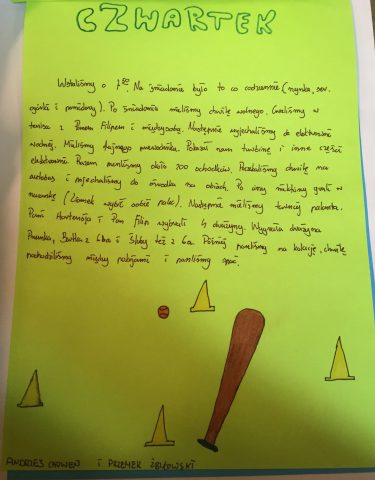 CZWARTEK
Wstaliśmy o 7:00. Na śniadanie było to co codziennie (szynka, ser,
ogórki i pomidory). Po śniadaniu mieliśmy chwilę wolnego. Graliśmy w
tenisa z Panem Filipem i między sobą. Następnie wyjechaliśmy do elektrowni
wodnej. Mieliśmy fajnego przewodnika. Pokazał nam turbinę i inne części
elektrowni. Razem zeszliśmy około 700 schodków. chwilę na
autobus i pojechaliśmy do ośrodka na obiad. Po ciszy graliśmy w
(Ziomek wybił sobie palec). Następnie mieliśmy turniej palanta.
Pani Hortensja i Pan Filip wybrali 4 drużyny. Wygrała drużyna
Bartka z 6ba i też z 6a. Później poszliśmy na kolację, chwilę
pochodziliśmy między pokojami i poszliśmy spać.
ANDRZEJ I PRZEMEK ŻBIKOWSKI